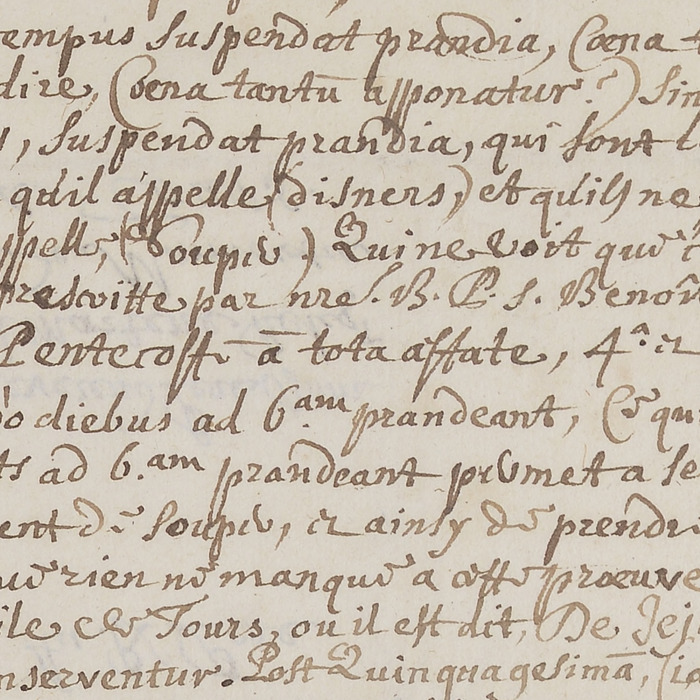 empus suspendat prandia, (cœna t
dire, (cœna tantū apponatur.) Sin
s, suspendat prandia, qui sont l
qu'il appelle (disners,) et qu'ils ne
ppelle, (Souper.) Qui ne voit que c
prescritte par nre. B. P. S. Benoi
Pentecoste ā tota æstate, 4.ª et
o diebus ad 6.am prandeant, (et qu
ts ad 6.am prandeant permet a se
ent de souper, et ainsy de prendr
ue rien ne manque a ceste preuve
ile de Tours, ou il est dit, De Jej
nserventur. Post Quinquagesimā, (i